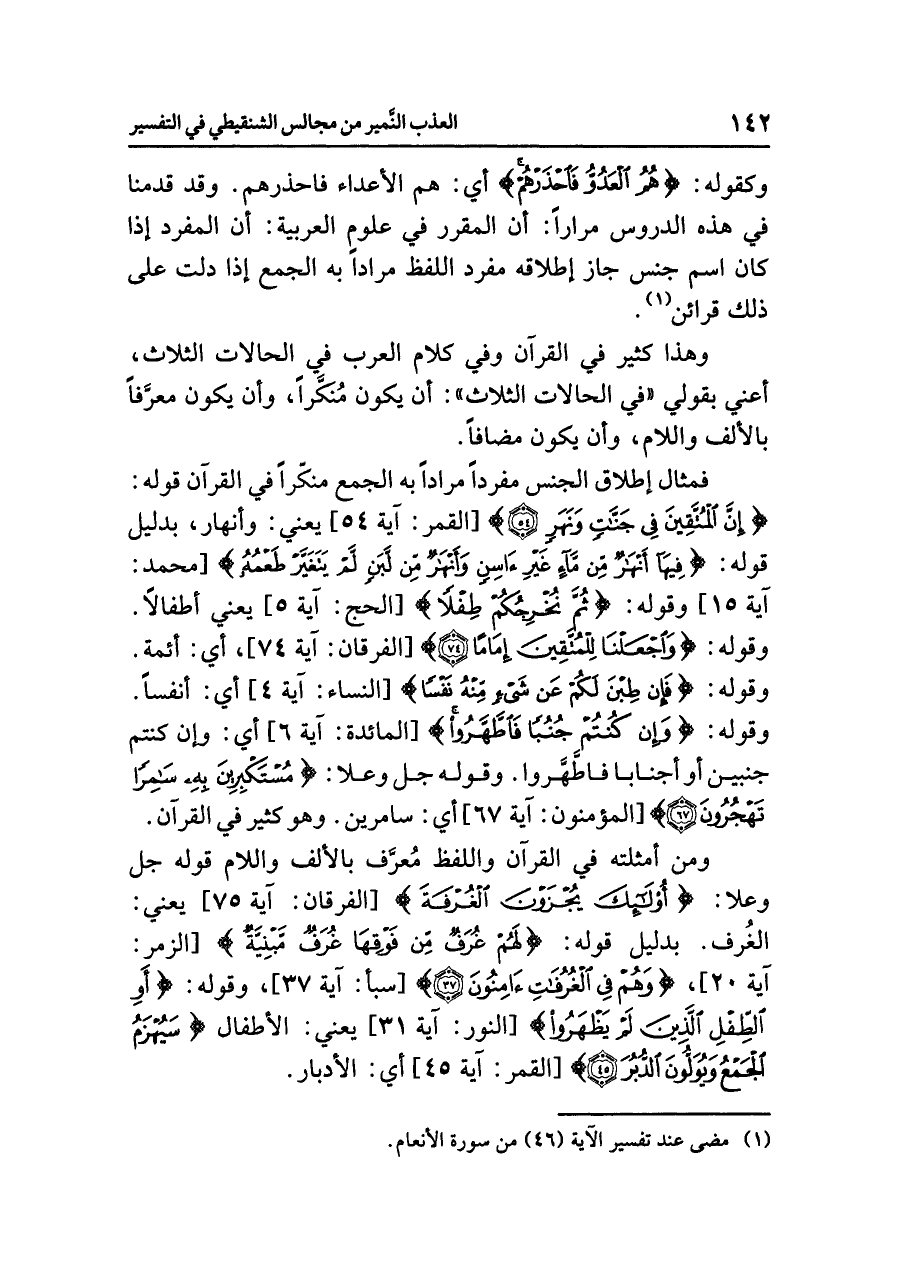 ١٤٢ العذب النَّمير من مجالس الشنقيطي في التفسير
وكقوله: ﴿هُمُ ٱلْعَدُوُّ فَٱحْذَرْهُمْ ۚ﴾ أي: هم الأعداء فاحذرهم. وقد قدمنا
في هذه الدروس مراراً: أن المقرر في علوم العربية: أن المفرد إذا
كان اسم جنس جاز إطلاقه مفرد اللفظ مراداً به الجمع إذا دلت على
ذلك قرائن(١).
وهذا كثير في القرآن وفي كلام العرب في الحالات الثلاث،
أعني بقولي «في الحالات الثلاث»: أن يكون مُنَكَّراً، وأن يكون معرَّفاً
بالألف واللام، وأن يكون مضافاً.
فمثال إطلاق الجنس مفرداً مراداً به الجمع منكّراً في القرآن قوله:
﴿إِنَّ ٱلْمُتَّقِينَ فِى جَنَّـٰتٍ وَنَهَرٍ ٥٤﴾ [القمر: آية ٥٤] يعني: وأنهار، بدليل
قوله: ﴿فِيهَآ أَنْهَـٰرٌ مِّن مَّآءٍ غَيْرِ ءَاسِنٍ وَأَنْهَـٰرٌ مِّن لَّبَنٍ لَّمْ يَتَغَيَّرْ طَعْمُهُۥ﴾ [محمد:
آية ١٥] وقوله: ﴿ثُمَّ نُخْرِجُكُمْ طِفْلًا﴾ [الحج: آية ٥] يعني أطفالاً.
وقوله: ﴿وَٱجْعَلْنَا لِلْمُتَّقِينَ إِمَامًا ٧٤﴾ [الفرقان: آية ٧٤]، أي: أئمة.
وقوله: ﴿فَإِن طِبْنَ لَكُمْ عَن شَىْءٍ مِّنْهُ نَفْسًا﴾ [النساء: آية ٤] أي: أنفساً.
وقوله: ﴿وَإِن كُنتُمْ جُنُبًا فَٱطَّهَّرُوا۟ ۚ﴾ [المائدة: آية ٦] أي: وإن كنتم
جنبين أو أجنابا فاطَّهَّروا. وقوله جل وعلا: ﴿مُسْتَكْبِرِينَ بِهِۦ سَـٰمِرًا
تَهْجُرُونَ ٦٧﴾ [المؤمنون: آية ٦٧] أي: سامرين. وهو كثير في القرآن.
ومن أمثلته في القرآن واللفظ مُعرَّف بالألف واللام قوله جل
وعلا: ﴿أُو۟لَـٰٓئِكَ يُجْزَوْنَ ٱلْغُرْفَةَ﴾ [الفرقان: آية ٧٥] يعني:
الغُرف. بدليل قوله: ﴿لَهُمْ غُرَفٌ مِّن فَوْقِهَا غُرَفٌ مَّبْنِيَّةٌ﴾ [الزمر:
آية ٢٠]، ﴿وَهُمْ فِى ٱلْغُرُفَـٰتِ ءَامِنُونَ ٣٧﴾ [سبأ: آية ٣٧]، وقوله: ﴿أَوِ
ٱلطِّفْلِ ٱلَّذِينَ لَمْ يَظْهَرُوا۟﴾ [النور: آية ٣١] يعني: الأطفال ﴿سَيُهْزَمُ
ٱلْجَمْعُ وَيُوَلُّونَ ٱلدُّبُرَ ٤٥﴾ [القمر: آية ٤٥] أي: الأدبار.
(١) مضى عند تفسير الآية (٤٦) من سورة الأنعام.